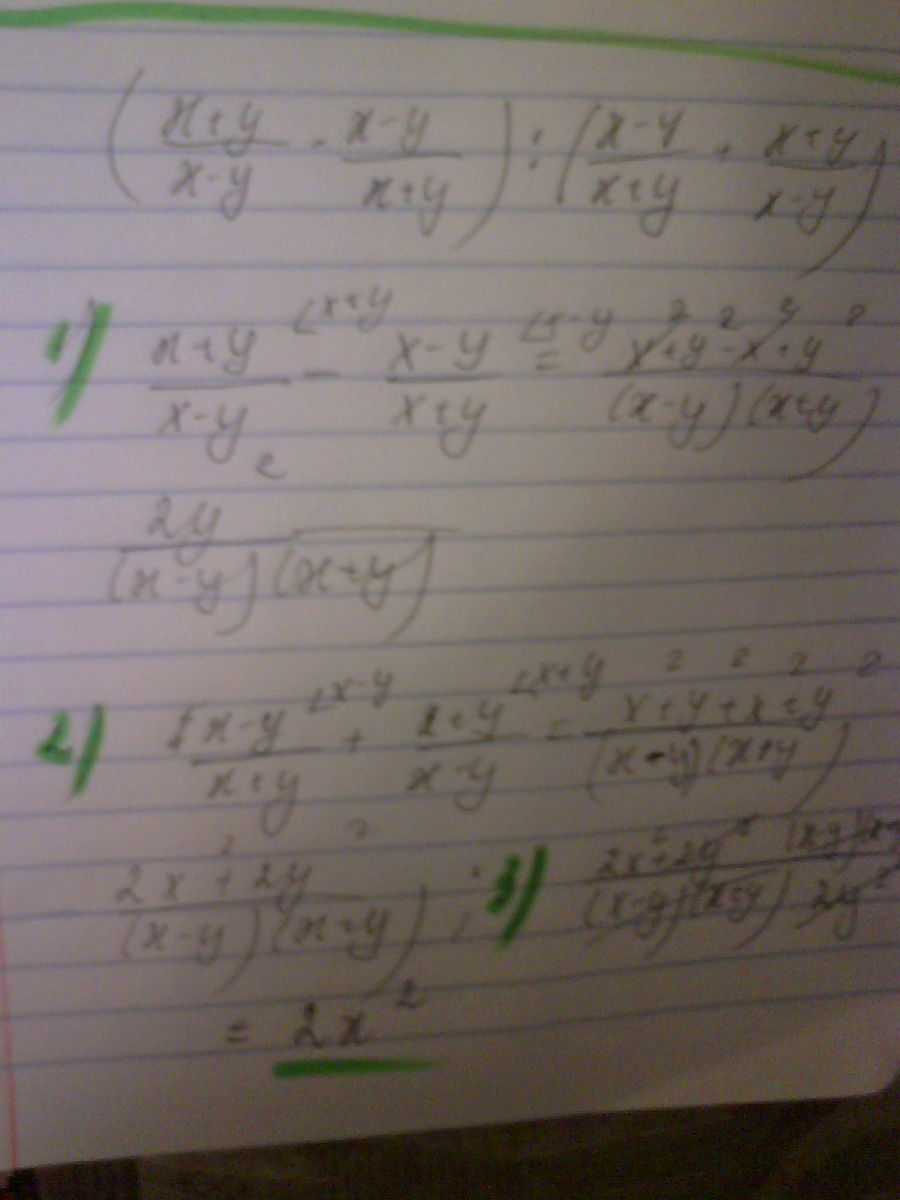 (x+y/x-y - x-y/x+y) : (x-y/x+y + x+y/x-y)
1) x+y/x-y ∠x+y - x-y/x+y ∠x-y = x²+y²-x²+y²/(x-y)(x+y)
2y²/(x-y)(x+y)
2) x-y/x+y ∠x-y + x+y/x-y ∠x+y = x²+y²+x²+y²/(x-y)(x+y)
2x²+2y²/(x-y)(x+y) ; 3) 2x²+2y²/(x-y)(x+y) (x-y)(x/2y²
= 2x²